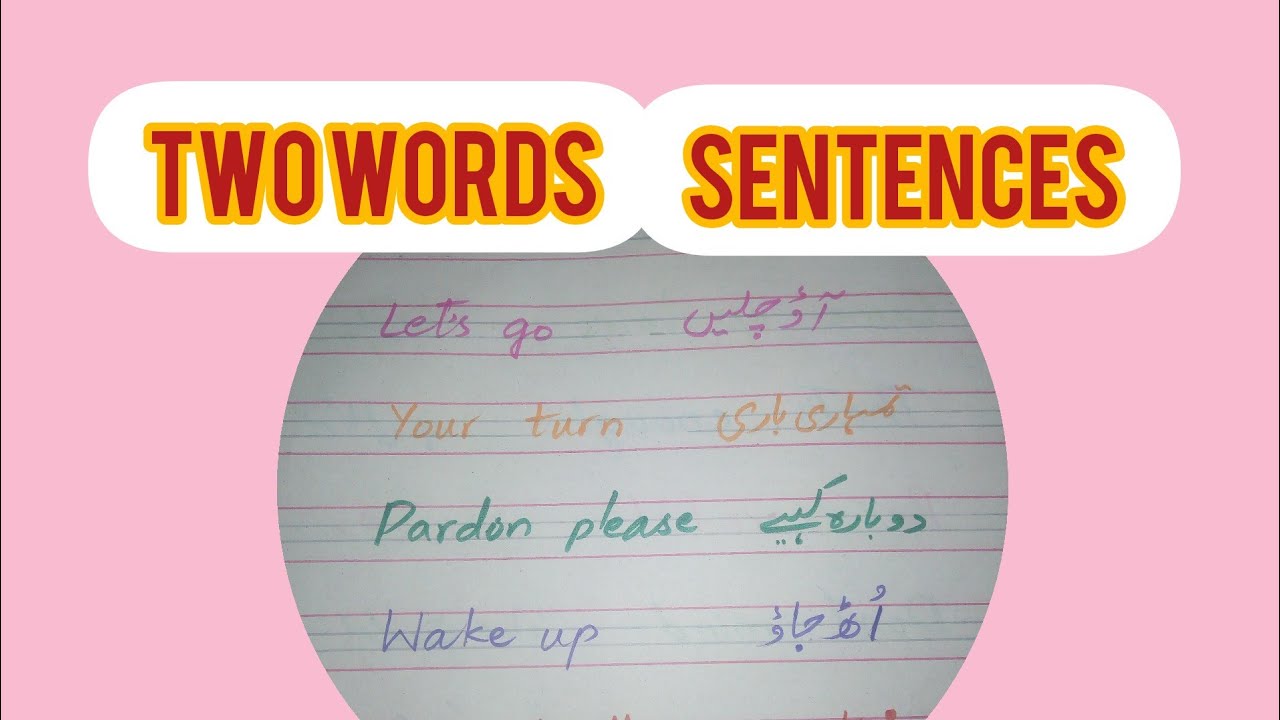 TWO WORDS SENTENCES
Let's go آؤ چلیں
Your turn تمہاری باری
Pardon please دوبارہ کہیے
Wake up اُٹھ جاؤ